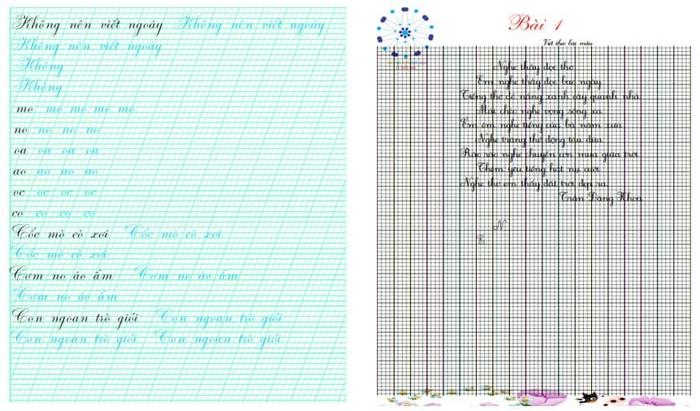 Không nên viết ngoáy Không nên viết ngoáy
Không nên viết ngoáy
Không
Không
mo mo mo mo mo
no no no no
oa oa oa oa
ao ao ao ao
oc oc oc oc
co co co co
Cốc mò cò xơi Cốc mò cò xơi
Cốc mò cò xơi
Cơm no áo ấm Cơm no áo ấm
Cơm no áo ấm
Con ngoan trò giỏi Con ngoan trò giỏi
Con ngoan trò giỏi Con ngoan trò giỏi
Bài 1
Viết theo bài mẫu
Nghe thầy đọc thơ
Em nghe thầy đọc bao ngày
Tiếng thơ đỏ nắng xanh cây quanh nhà
Mái chèo nghe vọng sông xa
Em êm nghe tiếng của bà năm xưa
Nghe trăng thở động tàu dừa
Rào rào nghe chuyển cơn mưa giữa trời
Thêm yêu tiếng hát nụ cười
Nghe thơ em thấy đất trời đẹp ra
Trần Đăng Khoa
N